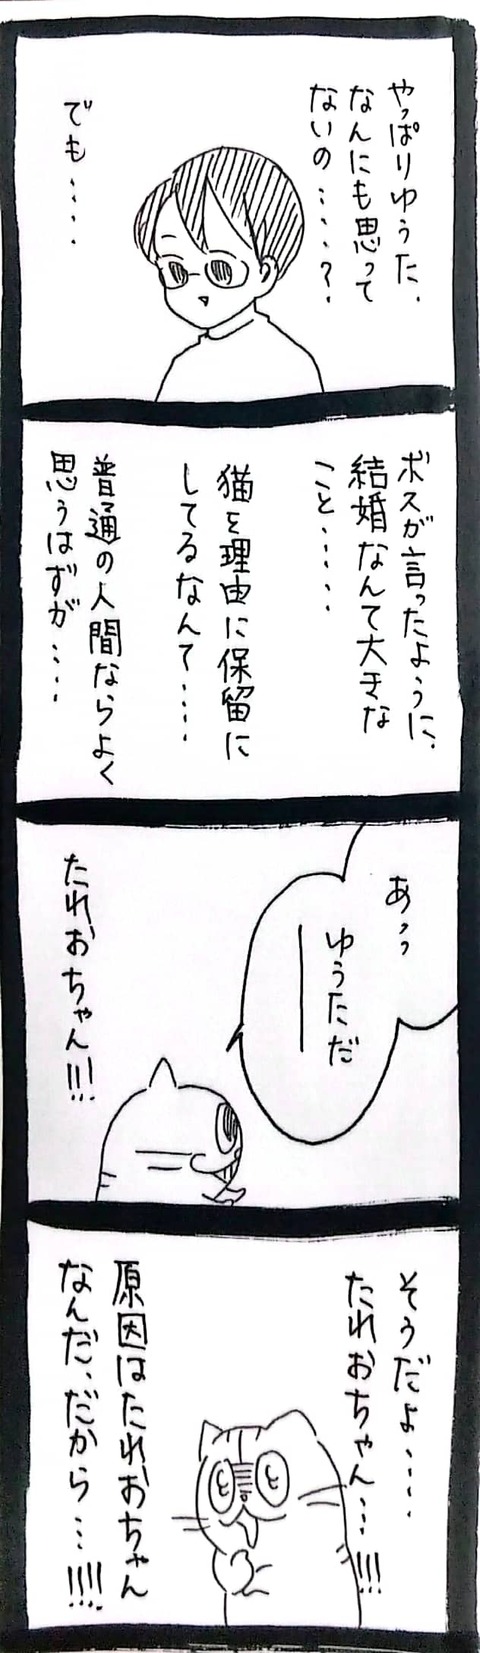 やっぱりゆうた、
なんにも思って
ないの‥‥?
でも‥‥
ボスが言ったように、
結婚なんて大きな
こと‥‥
猫を理由に保留に
してるなんて‥‥
普通の人間ならよく
思うはずが‥‥
あっっ
ゆうただ
――
たれおちゃん!!!
そうだよ‥‥
たれおちゃん…!!!
原因はたれおちゃん
なんだ、だから…!!!!